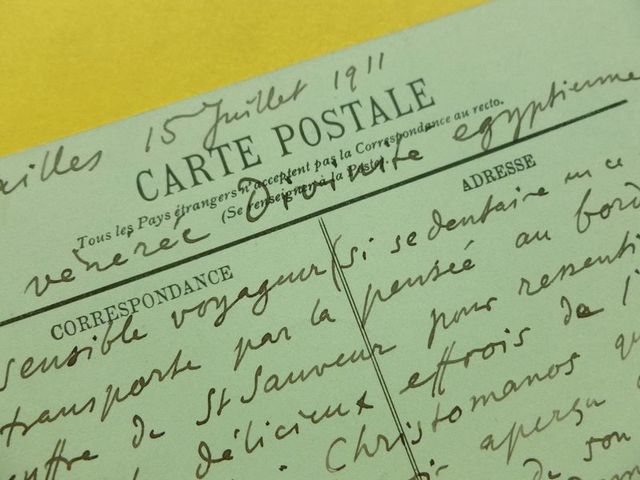 ailles 15 Juillet 1911
CARTE POSTALE
Tous les Pays étrangers n'acceptent pas la Correspondance au recto.
(Se renseigner à la Poste).
vénérée Divinité egyptienne
CORRESPONDANCE
ADRESSE
sensible voyageur (si sedentaire en ce
transporte par la pensée au bord
de St Sauveur pour ressenti
délicieux effrois de l'
Christomanos qu
aperçu
de son